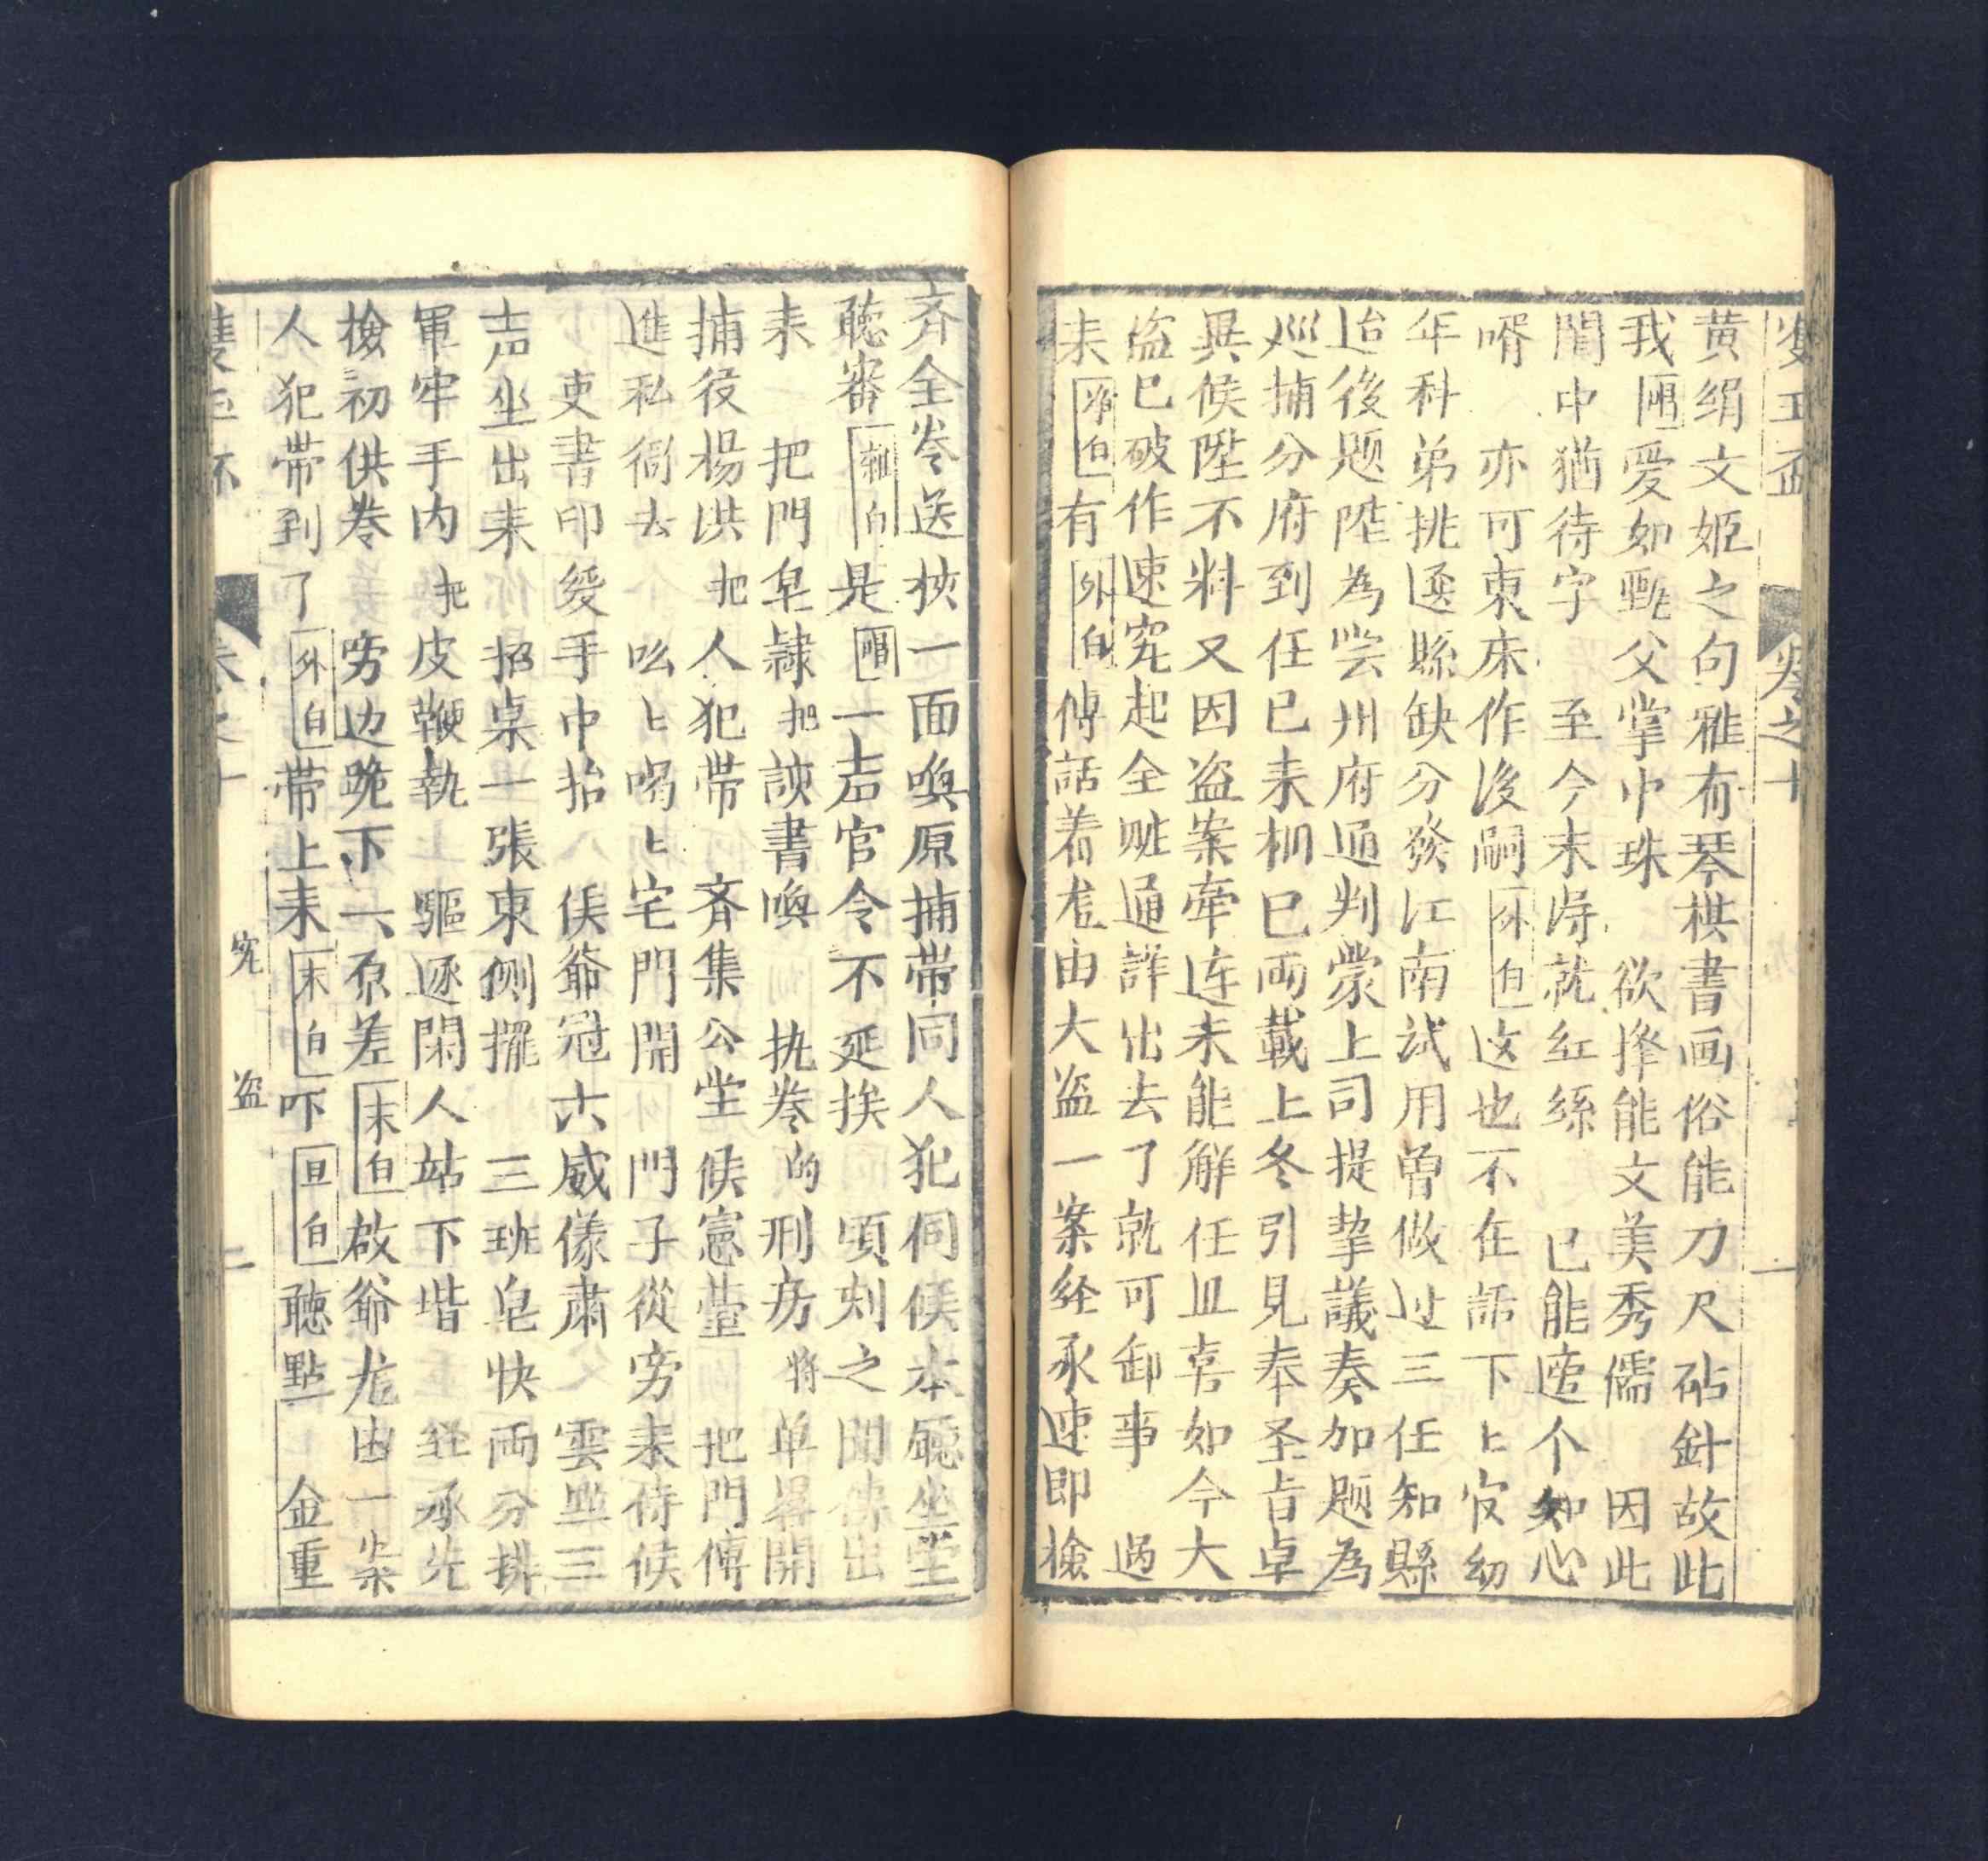 雙玉盃 卷之十 一
黄絹文姬之句雅有琴棋書画俗能刀尺砧針故此
我唱愛如甄父掌中珠 欲擇能文美秀儒 因此
閨中猶待字 至今未得就紅絲 已能這个知心
壻 亦可東床作後嗣外白这也不在話下上官幼
年科弟挑选縣缺分發江南試用曾做过三任知縣
迨後题陞為甞州府通判蒙上司提挈議奏加题為
巡捕分府到任已来枊已両載上冬引見奉圣旨卓
異候陞不料又因盗案牽连未能觧任且喜如今大
盗已破作速究起全赃通詳出去了就可卸事 過
来净白有外白傳話着尨由大盗一案经承速即檢
齐全卷送核一面喚原捕带同人犯伺候本廳坐堂
聴審雜白是唱一声官令不延挨 頃刻之間傳出
来 把門皂隸把諌書喚 执卷的刑房将单畧開
捕役楊洪把人犯带 齐集公堂候憲臺 把門傳
進私衙去 吆上喝上宅門開 門子從旁来待候
吏書印綬手中抬 侯爺冠六威儀肅 雲點三
声坐出来 招桌一張東側擺 三班皂快両分排
軍牢手内把皮鞭執 驅逐閑人站下堦 经承先
檢初供卷 旁边跪下一原差末白啟爺尨由一案
人犯带到了外白带上来末白吓旦白聴點 金重
雙玉杯 卷之十 究盗 二